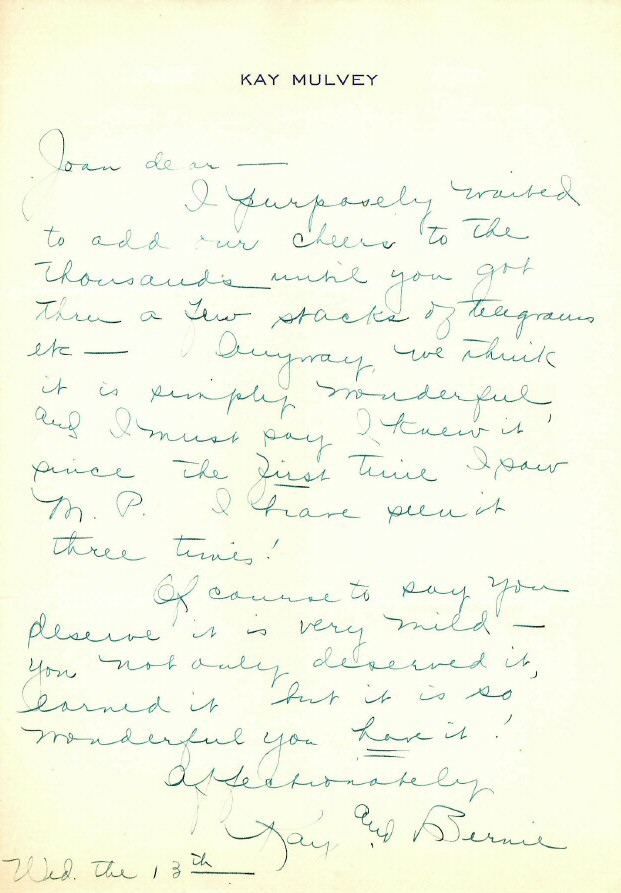 KAY MULVEY
Joan dear —
I purposely waited
to add our cheers to the
thousands until you got
thru a few stacks of telegrams
etc — Anyway, we think
it is simply wonderful
and I must say I "knew it"
since the first time I saw
M. P. I have seen it
three times!
Of course to say you
deserve it is very mild —
you not only deserved it,
earned it but it is so
wonderful you have it!
Affectionately
Kay and Bernie
Wed. the 13th